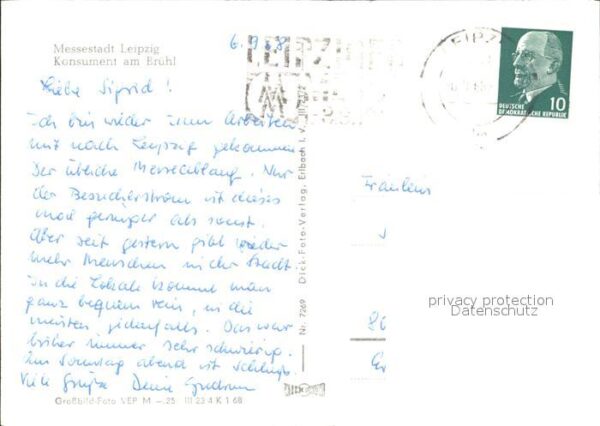 Messestadt Leipzig
Konsument am Brühl
6.9.68
LEIPZIGER
LEIPZIG
DEUTSCHE
DEMOKRATISCHE REPUBLIK
10
Liebe Sigrid!
Ich bin wieder zum Arbeiten
mit nach Leipzig gekommen
Der übliche Messeablauf. Nur
der Besucherstrom ist dieses
mal geringer als sonst.
Aber seit gestern gibt wieder
mehr Menschen in der Stadt.
In die Lokale kommt man
ganz bequem rein, in die
meisten jedenfalls. Das war
früher immer sehr schwierig.
Am Sonntag abend ist Schluß.
Viele Grüße Deine Gudrun
Fräulein
86
Nr. 7269 Dick-Foto-Verlag, Erlbach i. V.
DICK
Großbild-Foto VEP M -.25 III 23 4 K 1 68
privacy protection
Datenschutz